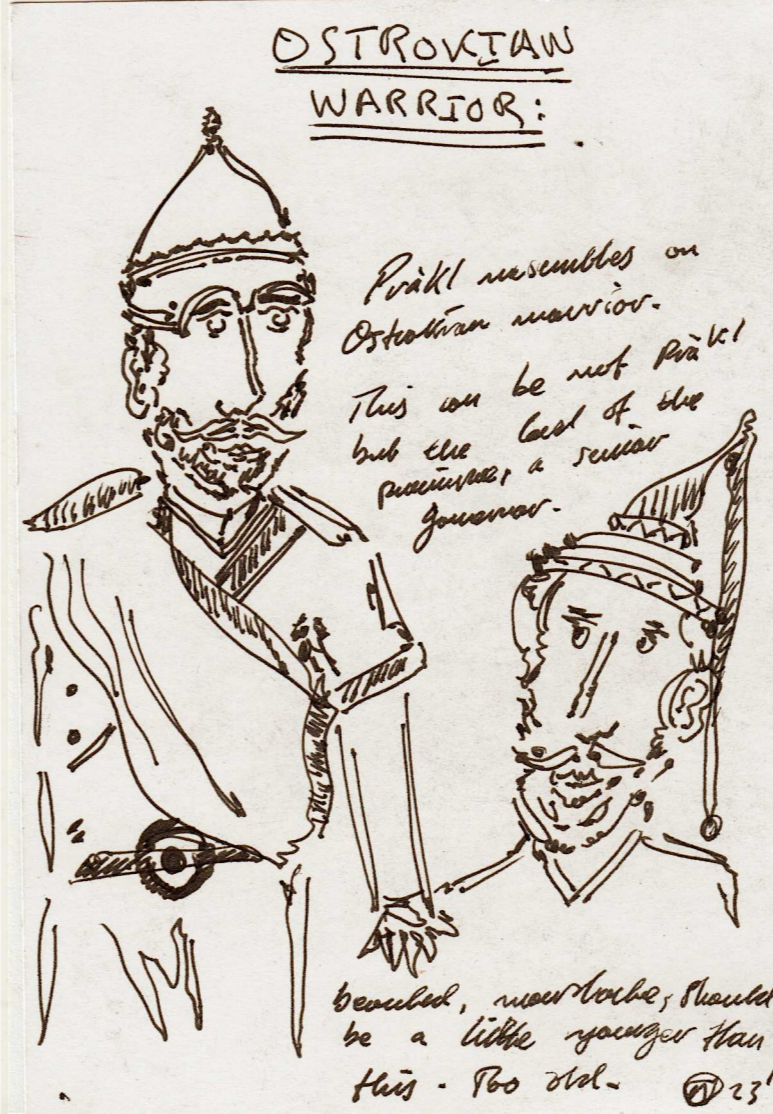 OSTROKIAN
WARRIOR:
Pràkl resembles an
Ostrokian warrior.
This can be not Pràkl
but the lord of the
province, a senior
Governor.
bearded, moustache, should
be a little younger than
this. Too old.
23'